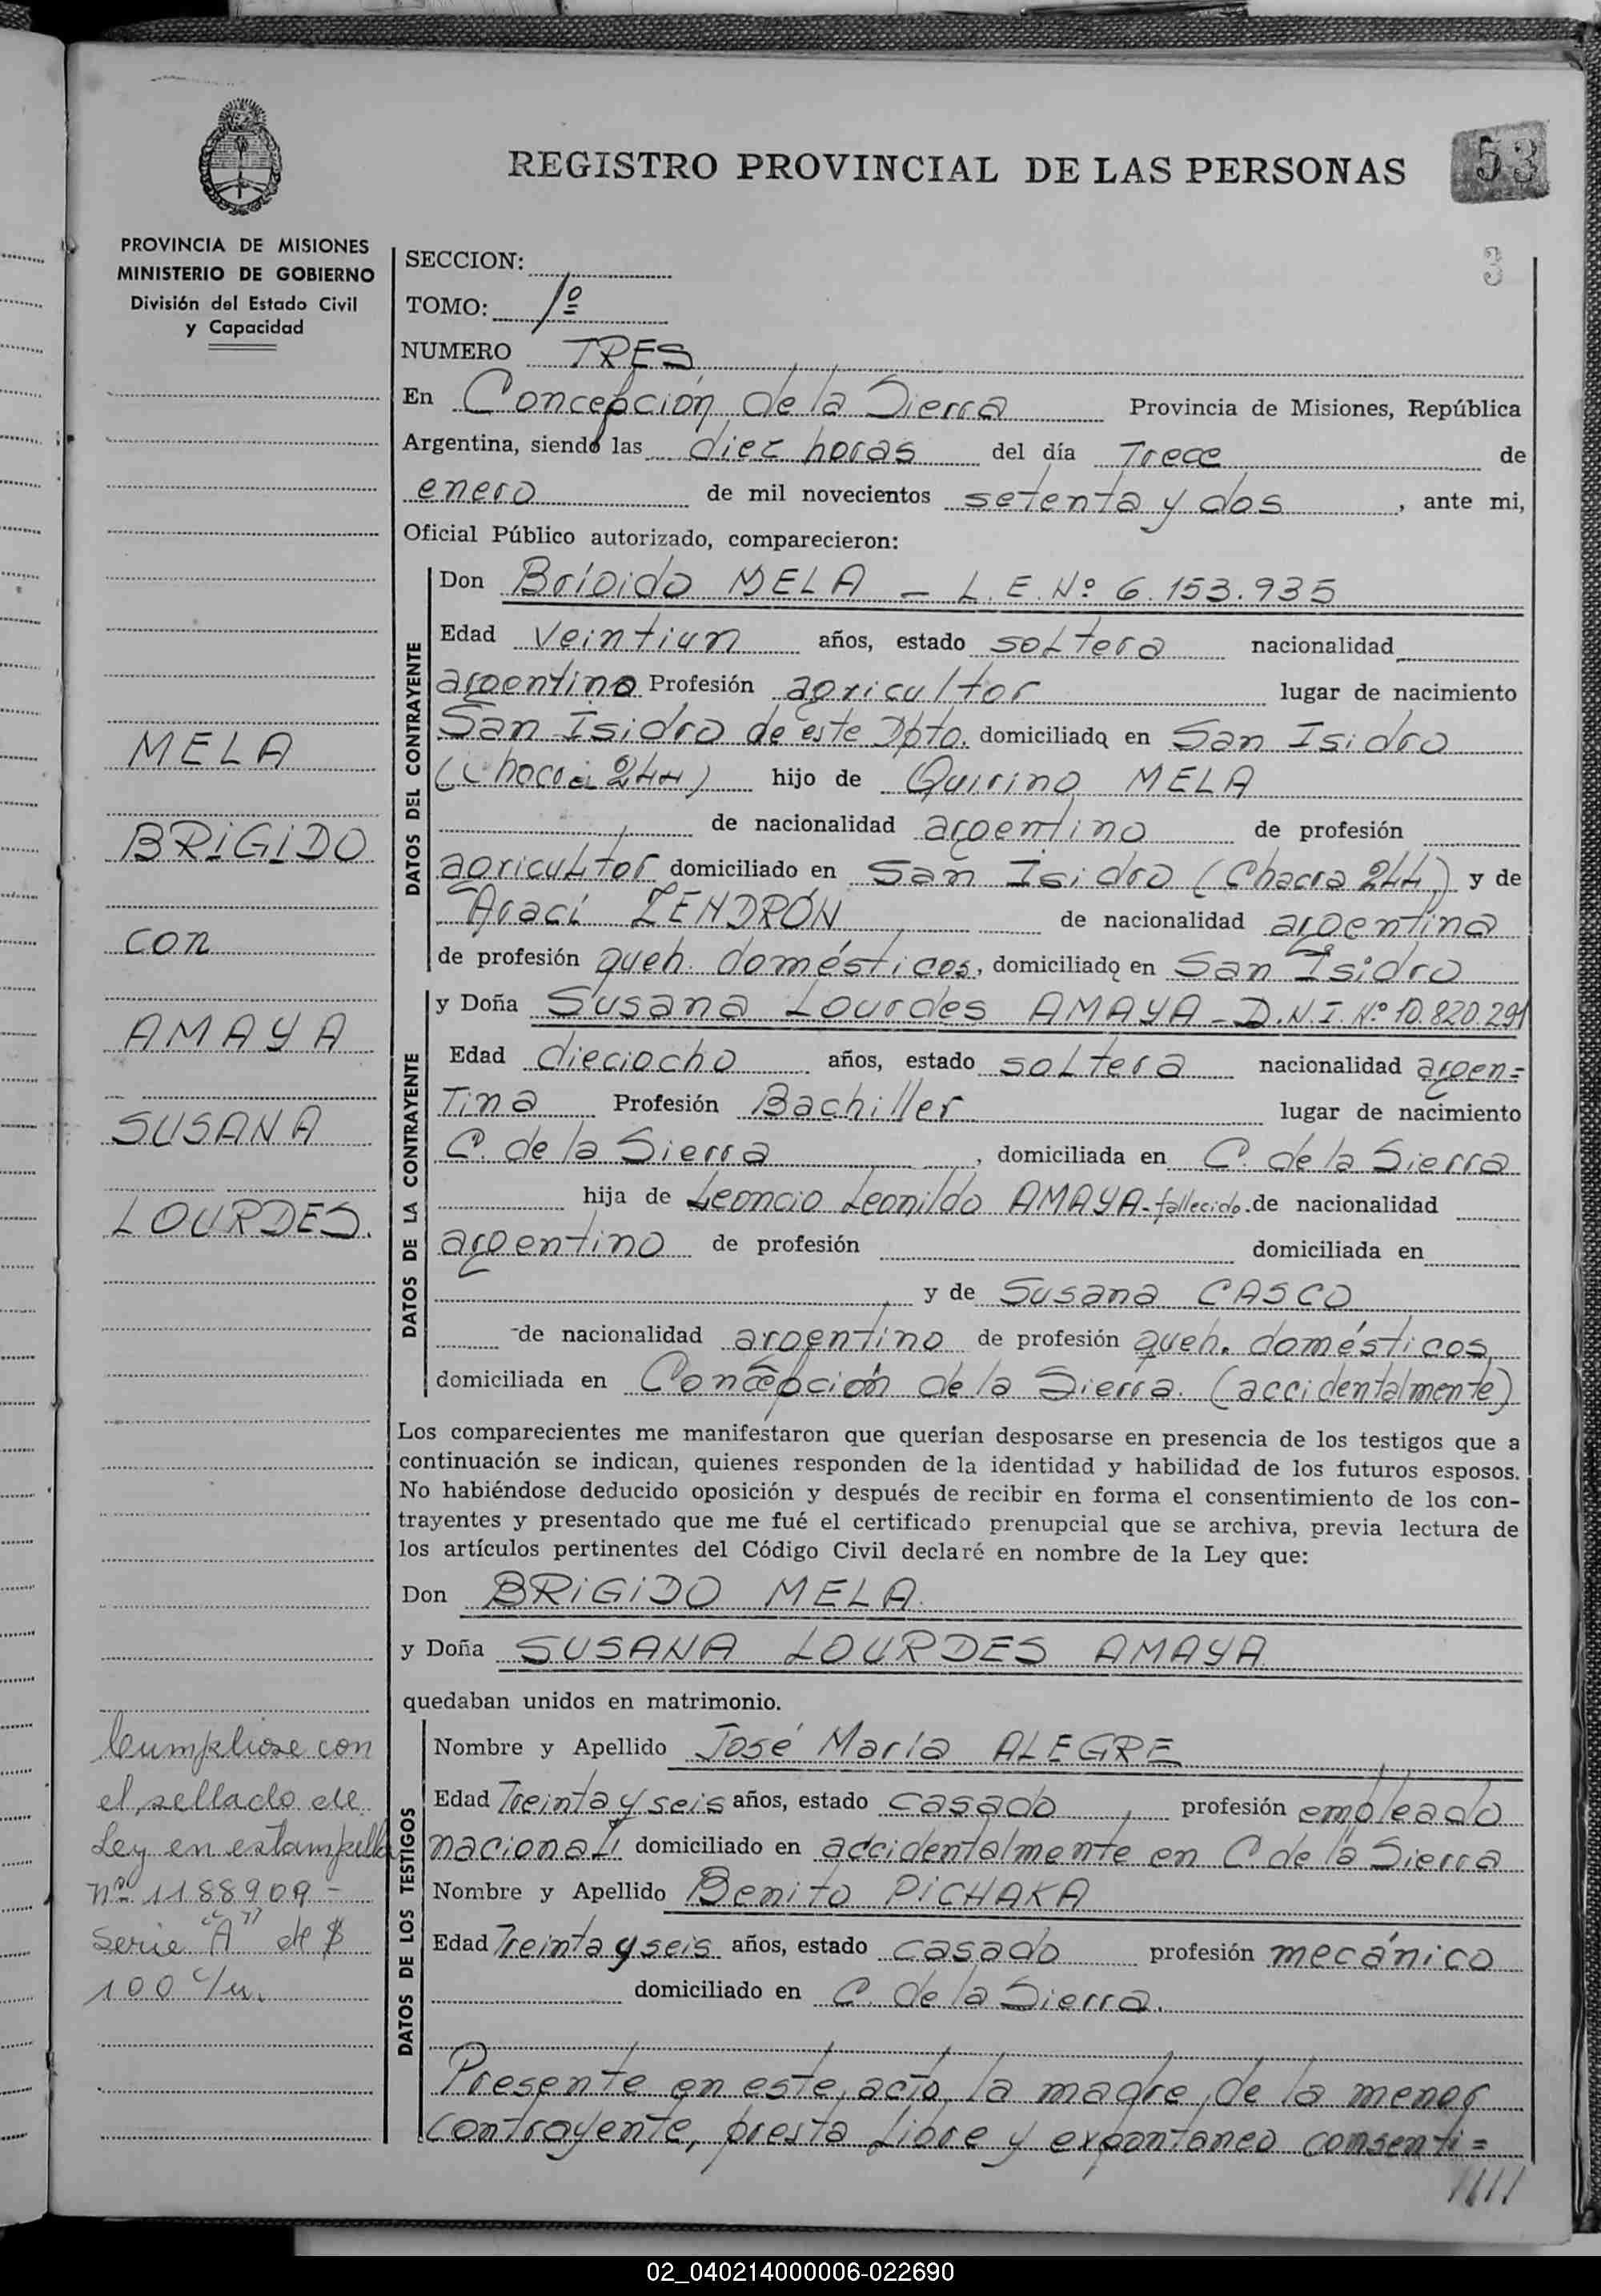 REGISTRO PROVINCIAL DE LAS PERSONAS
53
3
PROVINCIA DE MISIONES
MINISTERIO DE GOBIERNO
División del Estado Civil
y Capacidad
MELA
BRIGIDO
con
AMAYA
SUSANA
LOURDES.
Cumpliose con
el sellado de
Ley en estampilla
nº 1188909 -
Serie "A" de $
100 c/u.
SECCION:
TOMO: 1º
NUMERO TRES
En Concepción de la Sierra Provincia de Misiones, República
Argentina, siendo las diez horas del día Trece de
enero de mil novecientos setenta y dos, ante mi,
Oficial Público autorizado, comparecieron:
DATOS DEL CONTRAYENTE
Don Brígido MELA - L.E. Nº 6.153.935
Edad veintiun años, estado soltero nacionalidad
argentino Profesión agricultor lugar de nacimiento
San Isidro de este Dpto. domiciliado en San Isidro
(Chacra 244) hijo de Quirino MELA
de nacionalidad argentino de profesión
agricultor domiciliado en San Isidro (Chacra 244) y de
Aracï ZENDRÓN de nacionalidad argentina
de profesión queh. domésticos, domiciliado en San Isidro
DATOS DE LA CONTRAYENTE
y Doña Susana Lourdes AMAYA - D.N.I. Nº 10.820.291
Edad dieciocho años, estado soltera nacionalidad argen=
tina Profesión Bachiller lugar de nacimiento
C. de la Sierra, domiciliada en C. de la Sierra
hija de Leoncio Leonildo AMAYA - fallecido. de nacionalidad
argentino de profesión domiciliada en
y de Susana CASCO
de nacionalidad argentino de profesión queh. domésticos
domiciliada en Concepción de la Sierra. (accidentalmente)
Los comparecientes me manifestaron que querían desposarse en presencia de los testigos que a
continuación se indican, quienes responden de la identidad y habilidad de los futuros esposos.
No habiéndose deducido oposición y después de recibir en forma el consentimiento de los con-
trayentes y presentado que me fué el certificado prenupcial que se archiva, previa lectura de
los artículos pertinentes del Código Civil declaré en nombre de la Ley que:
Don BRIGIDO MELA.
y Doña SUSANA LOURDES AMAYA
quedaban unidos en matrimonio.
DATOS DE LOS TESTIGOS
Nombre y Apellido José María ALEGRE
Edad Treinta y seis años, estado casado, profesión empleado
nacional domiciliado en accidentalmente en C de la Sierra
Nombre y Apellido Benito PICHAKA
Edad Treinta y seis años, estado casado profesión mecánico
domiciliado en C. de la Sierra.
Presente en este acto la madre de la menor
contrayente, presta libre y expontaneo consenti=
////
02_040214000006-022690